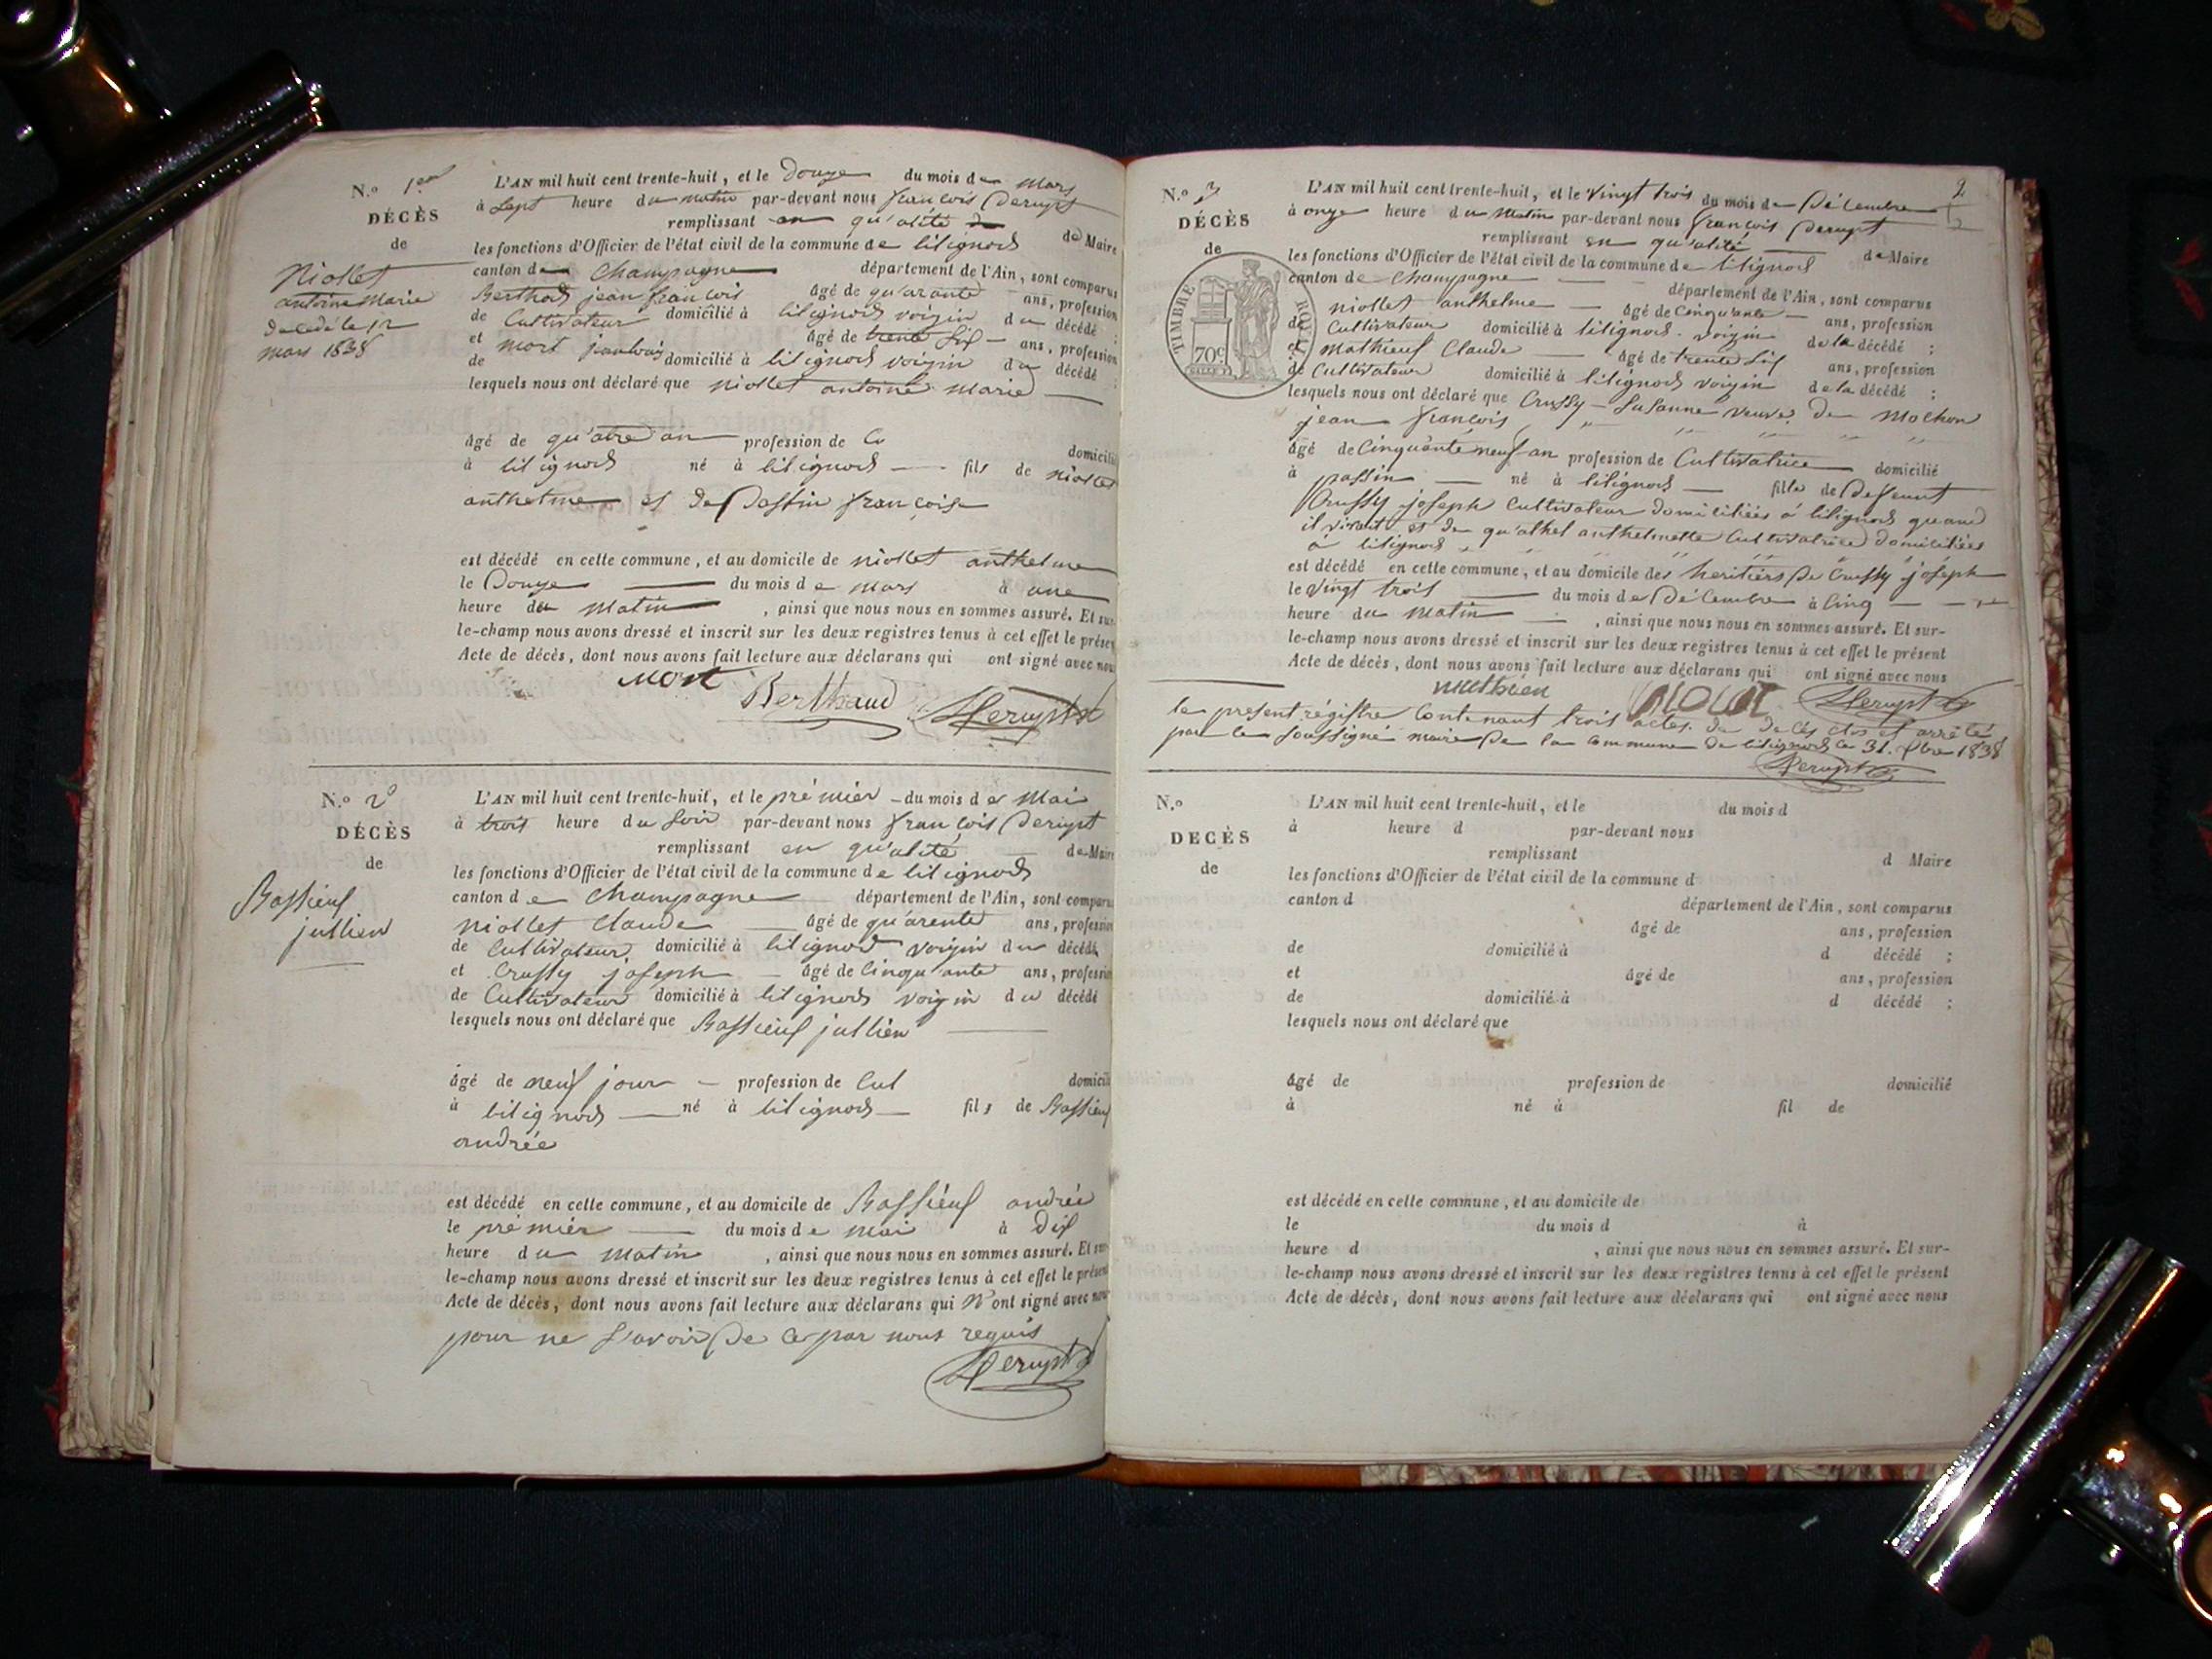 N.º 1er
DÉCÈS
de
Niollet
antoine Marie
décédé le 12
mars 1838
L'AN mil huit cent trente-huit, et le Douze du mois de mars
à sept heure du matin par-devant nous françois Derupt
remplissant en qu'alité de Maire
les fonctions d'Officier de l'état civil de la commune de lilignods
canton de Champagne département de l'Ain, sont comparus
Berthod jean françois âgé de qu'arante ans, profession
de Cultivateur domicilié à lilignods voizin du décédé ;
et mort jeanlouis âgé de trente six ans, profession
de domicilié à lilignods voizin du décédé ;
lesquels nous ont déclaré que niollet antoine marie
âgé de qu'atre an profession de Cu domicilié
à lilignods né à lilignods fils de niollet
anthelme et de Passin françoise
est décédé en cette commune, et au domicile de niollet anthelme
le Douze du mois de mars à une
heure du matin , ainsi que nous nous en sommes assuré. Et sur-
le-champ nous avons dressé et inscrit sur les deux registres tenus à cet effet le présent
Acte de décès, dont nous avons fait lecture aux déclarans qui ont signé avec nous
Mort Berthaud Derupt
N.º 2
DÉCÈS
de
Bassieux
jullien
L'AN mil huit cent trente-huit, et le prémiér du mois de Mai
à trois heure du soir par-devant nous françois Derupt
remplissant en qu'alité de Maire
les fonctions d'Officier de l'état civil de la commune de lilignods
canton de Champagne département de l'Ain, sont comparus
niollet Claude âgé de qu'arente ans, profession
de Cultivateur domicilié à lilignod voizin du décédé
et Crussy joseph âgé de Cinqu'ante ans, profession
de Cultivateur domicilié à lilignods voizin du décédé
lesquels nous ont déclaré que Bassieux jullien
âgé de neuf jour profession de Cul domicilié
à lilignods né à lilignods fils de Bassieux
andrée
est décédé en cette commune, et au domicile de Bassieux andrée
le prémiér du mois de mai à dix
heure du matin , ainsi que nous nous en sommes assuré. Et sur-
le-champ nous avons dressé et inscrit sur les deux registres tenus à cet effet le présent
Acte de décès, dont nous avons fait lecture aux déclarans qui N'ont signé avec nous
pour ne savoir De ce par nous requis
Derupt
2
N.º 3
DÉCÈS
de
TIMBRE ROYAL
70c
L'AN mil huit cent trente-huit, et le vingt trois du mois de Décembre
à onze heure du matin par-devant nous françois Derupt
remplissant en qu'alité de Maire
les fonctions d'Officier de l'état civil de la commune de lilignods
canton de Champagne département de l'Ain, sont comparus
niollet anthelme âgé de Cinqu'ante ans, profession
de Cultivateur domicilié à lilignods voizin de la décédé ;
et Mathieux Claude âgé de trente six ans, profession
de Cultivateur domicilié à lilignods voizin de la décédé ;
lesquels nous ont déclaré que Crussy Susanne veuve de Mochon
jean françois
âgé de Cinquante neuf an profession de Cultivatrice domicilié
à passin né à lilignods fille de Deffeunt
Crussy joseph Cultivateur domiciliées à lilignods quand
il vivait et de qu'athel anthelmette Cultivatrice domiciliées
à lilignods
est décédé en cette commune, et au domicile des heritiérs De Crussy joseph
le vingt trois du mois de Décembre à Cinq
heure du matin , ainsi que nous nous en sommes assuré. Et sur-
le-champ nous avons dressé et inscrit sur les deux registres tenus à cet effet le présent
Acte de décès, dont nous avons fait lecture aux déclarans qui ont signé avec nous
Derupt
le présent régistre Contenant trois actes de décés clos et arrêté
par le soussigné maire De la commune de lilignods le 31. Xbre 1838
Derupt
N.º
DÉCÈS
de
L'AN mil huit cent trente-huit, et le du mois d
à heure d par-devant nous
remplissant d Maire
les fonctions d'Officier de l'état civil de la commune d
canton d département de l'Ain, sont comparus
âgé de ans, profession
de domicilié à d décédé ;
et âgé de ans, profession
de domicilié à d décédé ;
lesquels nous ont déclaré que
âgé de profession de domicilié
à né à fil de
est décédé en cette commune, et au domicile de
le du mois d à
heure d , ainsi que nous nous en sommes assuré. Et sur-
le-champ nous avons dressé et inscrit sur les deux registres tenus à cet effet le présent
Acte de décès, dont nous avons fait lecture aux déclarans qui ont signé avec nous